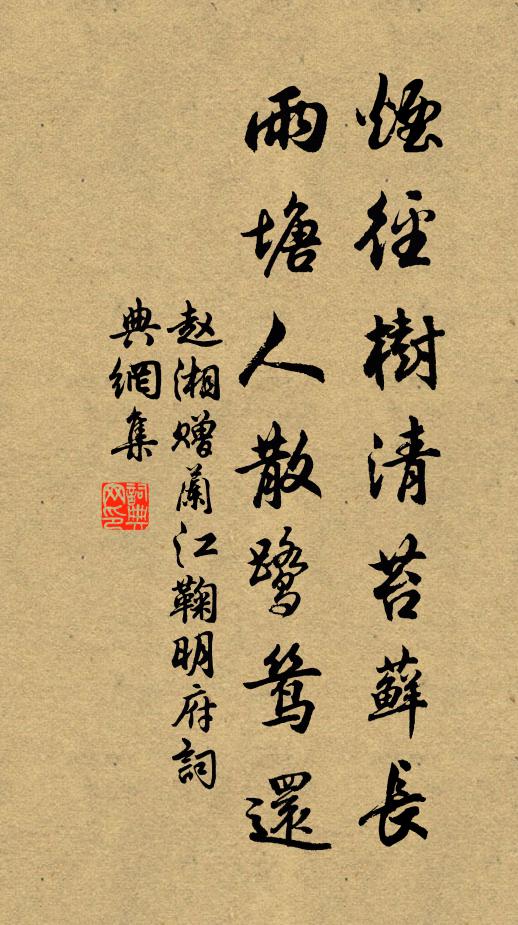 煙徑樹清苔蘚長
雨塘人散鷺鴛還
赵湘贈蘭江鞠明府詞
典網集
詞典
网印